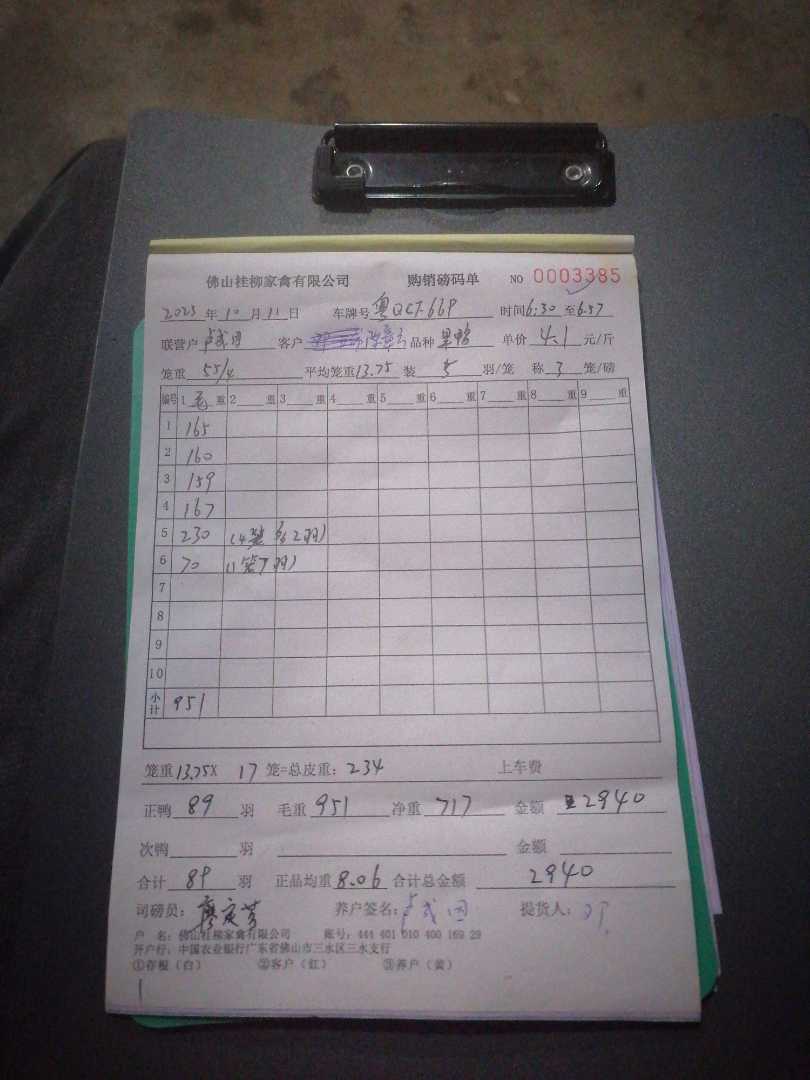 佛山桂柳家禽有限公司 购销磅码单 NO 0003385
2023 年 10 月 11 日 车牌号 粤QCT669 时间 6:30 至 6:57
联营户 卢武团 客户 品种 黑鸭 单价 4.1 元/斤
笼重 55/4 平均笼重 13.75 装 5 羽/笼 称 3 笼/磅
编号 1 毛 重 2 重 3 重 4 重 5 重 6 重 7 重 8 重 9 重
1 165
2 160
3 159
4 167
5 230 (4笼 2羽)
6 70 (1笼7羽)
7
8
9
10
小计 951
笼重 13.75X 17 笼=总皮重: 234 上车费
正鸭 89 羽 毛重 951 净重 717 金额 2940
次鸭 羽 金额
合计 89 羽 正品均重 8.06 合计总金额 2940
司磅员: 养户签名: 卢武团 提货人:
户 名: 佛山桂柳家禽有限公司 账号: 444 401 010 400 169 29
开户行: 中国农业银行广东省佛山市三水区三水支行
①存根(白) ②客户(红) ③养户(黄)